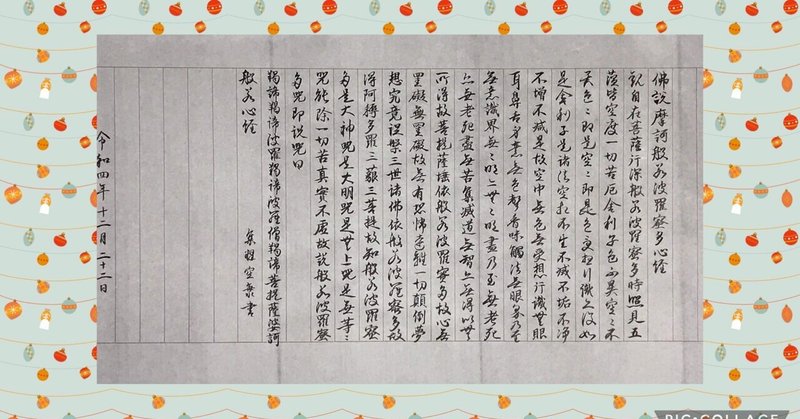 佛説摩訶般若波羅蜜多心経
観自在菩薩行深般若波羅蜜多時照見五
蘊皆空度一切苦厄舎利子色不異空々不
異色々即是空々即是色受想行識亦復如
是舎利子是諸法空相不生不滅不垢不浄
不増不減是故空中無色無受想行識無眼
耳鼻舌身意無色聲香味觸法無眼界乃至
無意識界無々明亦無々明盡乃至無老死
亦無老死盡無苦集滅道無智亦無得以無
所得故菩提薩埵依般若波羅蜜多故心無
罣礙無罣礙故無有恐怖遠離一切顛倒夢
想究竟涅槃三世諸佛依般若波羅蜜多故
得阿耨多羅三藐三菩提故知般若波羅蜜
多是大神呪是大明呪是無上呪是無等々
呪能除一切苦真實不虚故説般若波羅蜜
多呪即説呪曰
羯諦羯諦波羅羯諦波羅僧羯諦菩提薩婆訶
般若心経
令和四年十二月二十二日
PIC•COLLAGE